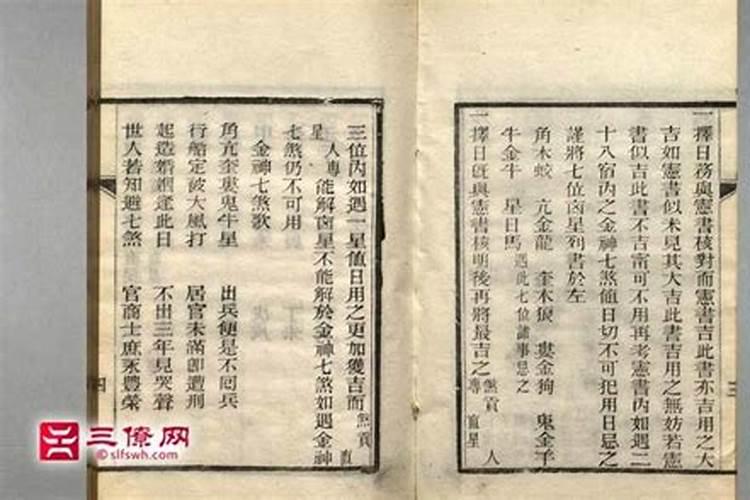 一擇日務與憲書核對而憲書吉此書亦吉用之大
吉如憲書似未見其大吉此書吉用之無妨若憲
書似吉此書不吉甯可不用再考憲書內如遇二
十八宿內之金神七煞值日切不可犯用日忌之
謹將七位凶星列書於左
角木蛟 亢金龍 奎木狼 婁金狗 鬼金羊
牛金牛 星日馬 遇此七位諸事忌之
一擇日既與憲書核明後再將最吉之 煞貢 專 直星 人
三位內如遇一星值日用之更加獲吉而 煞貢 直
星 人專 能解凶星不能解於金神七煞如遇金神
七煞仍不可用
金神七煞歌
角亢奎婁鬼牛星 出兵便是不回兵
行船定被大風打 居官未滿即遭刑
起造婚姻逢此日 不出三年見哭聲
世人若知避七煞 官商士庶永豐榮
三
四
三僚网
©slfswh.com